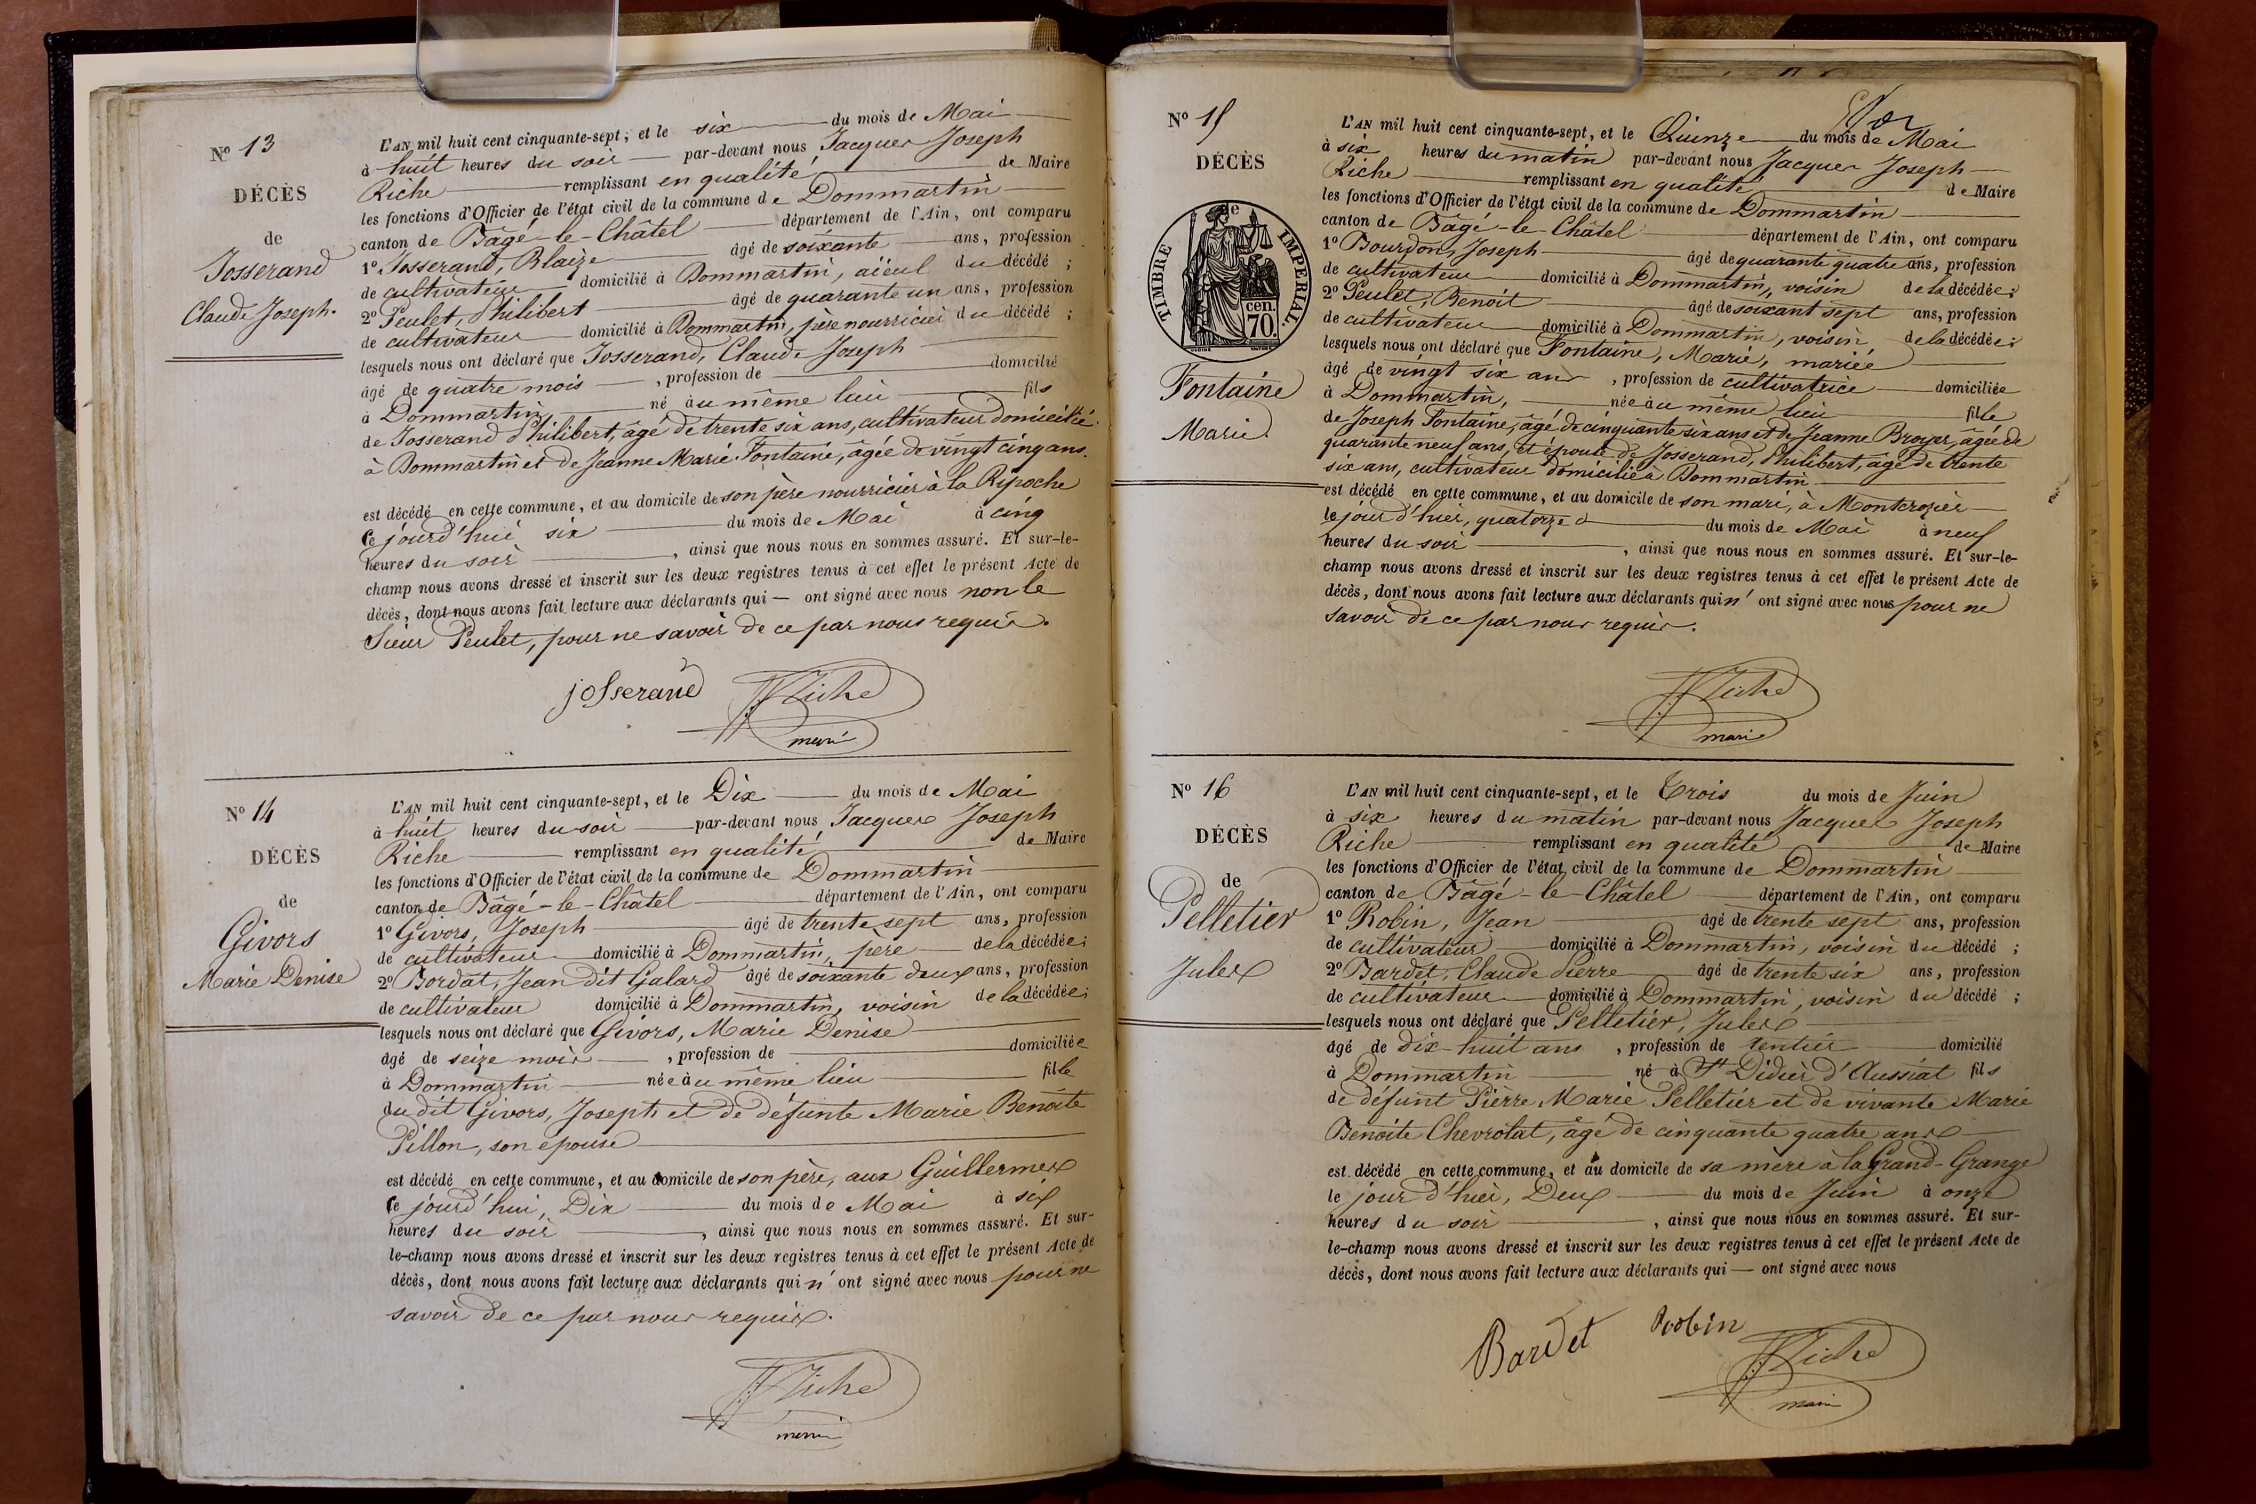 Nº 13
DÉCÈS
de
Josserand
Claude Joseph.
L'AN mil huit cent cinquante-sept, et le six du mois de Mai
à huit heures du soir par-devant nous Jacques Joseph
Riche remplissant en qualité de Maire
les fonctions d'Officier de l'état civil de la commune de Dommartin
canton de Bâgé-le-Châtel département de l'Ain, ont comparu
1º Josserand, Blaize âgé de soixante ans, profession
de cultivateur domicilié à Dommartin, aïeul du décédé ;
2º Peulet, Philibert âgé de quarante un ans, profession
de cultivateur domicilié à Dommartin, père nourricier du décédé ;
lesquels nous ont déclaré que Josserand, Claude Joseph
âgé de quatre mois , profession de domicilié
à Dommartin né àu même lieu fils
de Josserand Philibert, âgé de trente six ans, cultivateur domicilié
à Dommartin et de Jeanne Marie Fontaine, âgée de vingt cinq ans.
est décédé en cette commune, et au domicile de son père nourricier à la Ripoche
ce jourd'hui six du mois de Mai à cinq
heures du soir , ainsi que nous nous en sommes assuré. Et sur-le-
champ nous avons dressé et inscrit sur les deux registres tenus à cet effet le présent Acte de
décès, dont nous avons fait lecture aux déclarants qui — ont signé avec nous non le
Sieur Peulet, pour ne savoir de ce par nous requis.
josserand Riche
maire
Nº 14
DÉCÈS
de
Givors
Marie Denise
L'AN mil huit cent cinquante-sept, et le Dix du mois de Mai
à huit heures du soir par-devant nous Jacques Joseph
Riche remplissant en qualité de Maire
les fonctions d'Officier de l'état civil de la commune de Dommartin
canton de Bâgé-le-Châtel département de l'Ain, ont comparu
1º Givors, Joseph âgé de trente sept ans, profession
de cultivateur domicilié à Dommartin, père de la décédée ;
2º Bordat, Jean dit Galard âgé de soixante deux ans, profession
de cultivateur domicilié à Dommartin, voisin de la décédée ;
lesquels nous ont déclaré que Givors, Marie Denise
âgé de seize mois , profession de domiciliée
à Dommartin née àu même lieu fille
du dit Givors, Joseph et de défunte Marie Benoite
Pillon, son épouse
est décédé en cette commune, et au domicile de son père, aux Guillermes
ce jourd'hui, Dix du mois de Mai à six
heures du soir , ainsi que nous nous en sommes assuré. Et sur-
le-champ nous avons dressé et inscrit sur les deux registres tenus à cet effet le présent Acte de
décès, dont nous avons fait lecture aux déclarants qui n' ont signé avec nous pour ne
savoir de ce par nous requis.
Riche
maire
Nº 15
DÉCÈS
de
TIMBRE IMPERIAL.
70. cen.
Fontaine
Marie
L'AN mil huit cent cinquante-sept, et le Quinze du mois de Mai
à six heures du matin par-devant nous Jacques Joseph
Riche remplissant en qualité de Maire
les fonctions d'Officier de l'état civil de la commune de Dommartin
canton de Bâgé-le-Châtel département de l'Ain, ont comparu
1º Bourdon, Joseph âgé de quarante quatre ans, profession
de cultivateur domicilié à Dommartin, voisin de la décédée ;
2º Peulet, Benoit âgé de soixant sept ans, profession
de cultivateur domicilié à Dommartin, voisin de la décédée ;
lesquels nous ont déclaré que Fontaine, Marie, mariée
âgé de vingt six ans , profession de cultivatrice domiciliée
à Dommartin, née àu même lieu fille
de Joseph Fontaine, âgé de cinquante six ans et de Jeanne Broyer, âgée de
quarante neuf ans, et épouse de Josserand, Philibert, âgé de trente
six ans, cultivateur domicilié à Dommartin
est décédé en cette commune, et au domicile de son mari, à Montcrozier
le jour d'hier, quatorze du mois de Mai à neuf
heures du soir , ainsi que nous nous en sommes assuré. Et sur-le-
champ nous avons dressé et inscrit sur les deux registres tenus à cet effet le présent Acte de
décès, dont nous avons fait lecture aux déclarants qui n' ont signé avec nous pour ne
savoir de ce par nous requis.
Riche
maire
Nº 16
DÉCÈS
de
Pelletier
Jules
L'AN mil huit cent cinquante-sept, et le Trois du mois de Juin
à six heures du matin par-devant nous Jacques Joseph
Riche remplissant en qualité de Maire
les fonctions d'Officier de l'état civil de la commune de Dommartin
canton de Bâgé-le-Châtel département de l'Ain, ont comparu
1º Robin, Jean âgé de trente sept ans, profession
de cultivateur domicilié à Dommartin, voisin du décédé ;
2º Bardet, Claude Pierre âgé de trente six ans, profession
de cultivateur domicilié à Dommartin, voisin du décédé ;
lesquels nous ont déclaré que Pelletier, Jules
âgé de dix-huit ans , profession de rentier domicilié
à Dommartin né à St Didier d'Aussiat fils
de défunt Pierre Marie Pelletier et de vivante Marie
Benoite Chevrolat, âgé de cinquante quatre ans
est décédé en cette commune, et au domicile de sa mère à la Grand-Grange
le jour d'hier, Deux du mois de Juin à onze
heures du soir , ainsi que nous nous en sommes assuré. Et sur-
le-champ nous avons dressé et inscrit sur les deux registres tenus à cet effet le présent Acte de
décès, dont nous avons fait lecture aux déclarants qui — ont signé avec nous
Bardet Robin Riche
maire